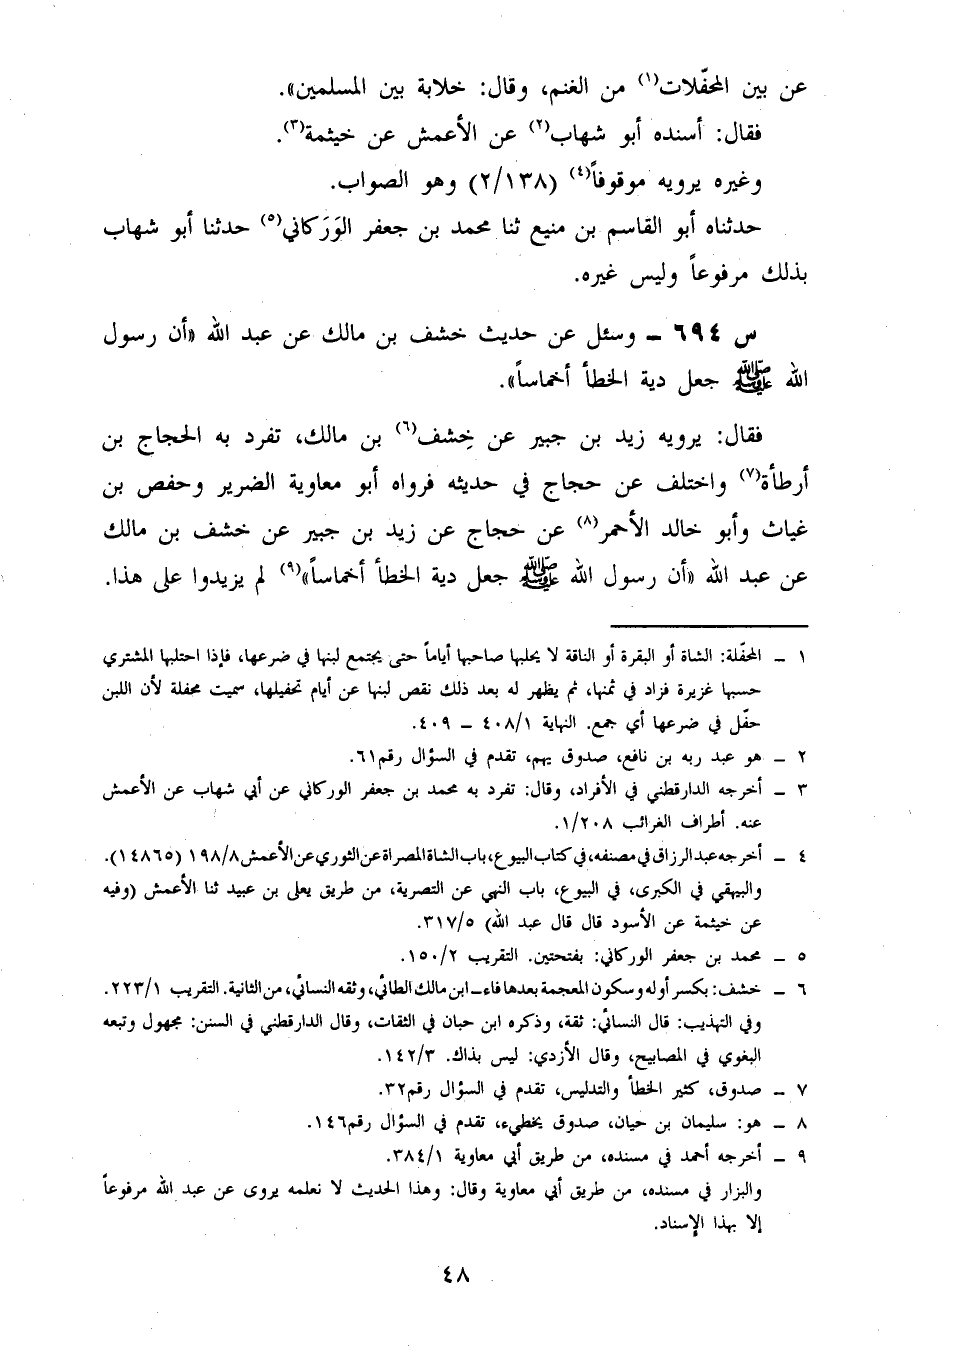 عن بين المحفّلات(١) من الغنم، وقال: خلابة بين المسلمين».
فقال: أسنده أبو شهاب(٢) عن الأعمش عن خيثمة(٣).
وغيره يرويه موقوفاً(٤) (٢/١٣٨) وهو الصواب.
حدثناه أبو القاسم بن منيع ثنا محمد بن جعفر الوَرَكاني(٥) حدثنا أبو شهاب
بذلك مرفوعاً وليس غيره.
س ٦٩٤ ـ وسئل عن حديث خشف بن مالك عن عبد الله «أن رسول
الله ﷺ جعل دية الخطأ أخماساً».
فقال: يرويه زيد بن جبير عن خِشف(٦) بن مالك، تفرد به الحجاج بن
أرطأة(٧) واختلف عن حجاج في حديثه فرواه أبو معاوية الضرير وحفص بن
غياث وأبو خالد الأحمر(٨) عن حجاج عن زيد بن جبير عن خشف بن مالك
عن عبد الله «أن رسول الله ﷺ جعل دية الخطأ أخماساً»(٩) لم يزيدوا على هذا.
١ ـ المحفّلة: الشاة أو البقرة أو الناقة لا يحلبها صاحبها أياماً حتى يجتمع لبنها في ضرعها، فإذا احتلبها المشتري
حسبها غزيرة فزاد في ثمنها، ثم يظهر له بعد ذلك نقص لبنها عن أيام تحفيلها، سميت محفلة لأن اللبن
حفّل في ضرعها أي جمع. النهاية ٤٠٨/١ ـ ٤٠٩.
٢ ـ هو عبد ربه بن نافع، صدوق يهم، تقدم في السؤال رقم٦١.
٣ ـ أخرجه الدارقطني في الأفراد، وقال: تفرد به محمد بن جعفر الوركاني عن أبي شهاب عن الأعمش
عنه. أطراف الغرائب ١/٢٠٨.
٤ ـ أخرجه عبد الرزاق في مصنفه، في كتاب البيوع، باب الشاة المصراة عن الثوري عن الأعمش ١٩٨/٨ (١٤٨٦٥).
والبيهقي في الكبرى، في البيوع، باب النهي عن التصرية، من طريق يعلى بن عبيد ثنا الأعمش (وفيه
عن خيثمة عن الأسود قال قال عبد الله) ٣١٧/٥.
٥ ـ محمد بن جعفر الوركاني: بفتحتين. التقريب ١٥٠/٢.
٦ ـ خشف: بكسر أوله وسكون المعجمة بعدها فاء ـ ابن مالك الطائي، وثقه النسائي، من الثانية. التقريب ٢٢٣/١.
وفي التهذيب: قال النسائي: ثقة، وذكره ابن حبان في الثقات، وقال الدارقطني في السنن: مجهول وتبعه
البغوي في المصابيح، وقال الأزدي: ليس بذاك. ١٤٢/٣.
٧ ـ صدوق، كثير الخطأ والتدليس، تقدم في السؤال رقم٣٢.
٨ ـ هو: سليمان بن حيان، صدوق يخطيء، تقدم في السؤال رقم١٤٦.
٩ ـ أخرجه أحمد في مسنده، من طريق أبي معاوية ٣٨٤/١.
والبزار في مسنده، من طريق أبي معاوية وقال: وهذا الحديث لا نعلمه يروى عن عبد الله مرفوعاً
إلا بهذا الإسناد.
٤٨